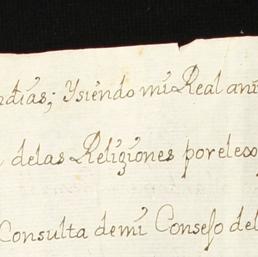 ndias; Ysiendo mi Real ani
delas Religiones porelex
Consulta demi Consejo del